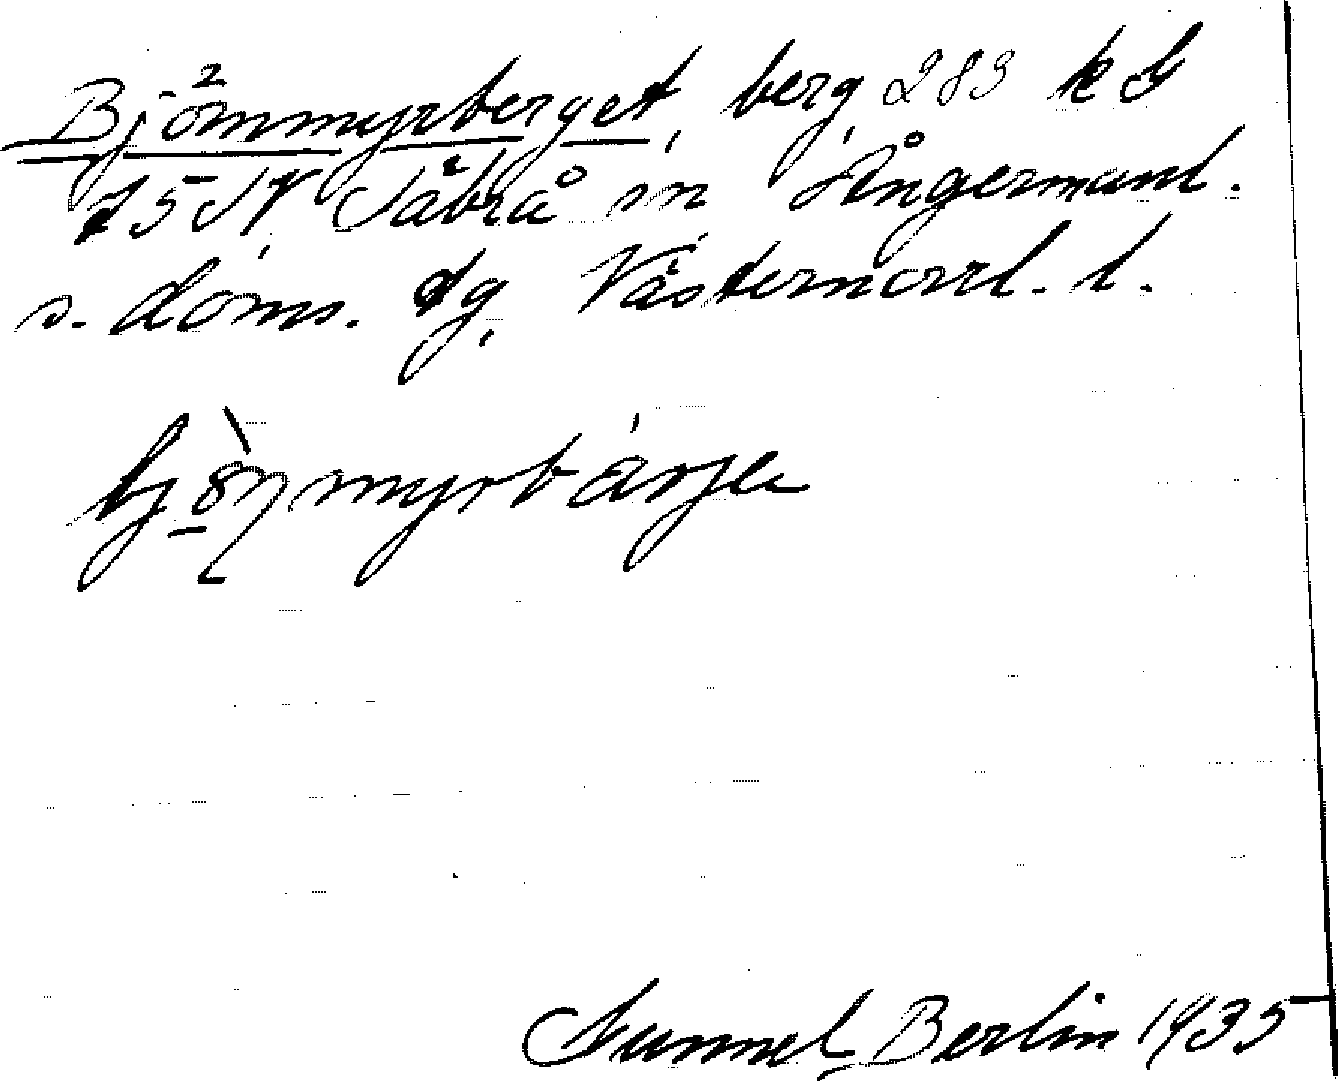 Björnmyrberget, berg, 283 k G
15 N, Säbrå sn Ångermanl.
s. doms. dg, Västernorrl. l.
bjö̀ɳmyrbárje
Gunnel Berlin 1935